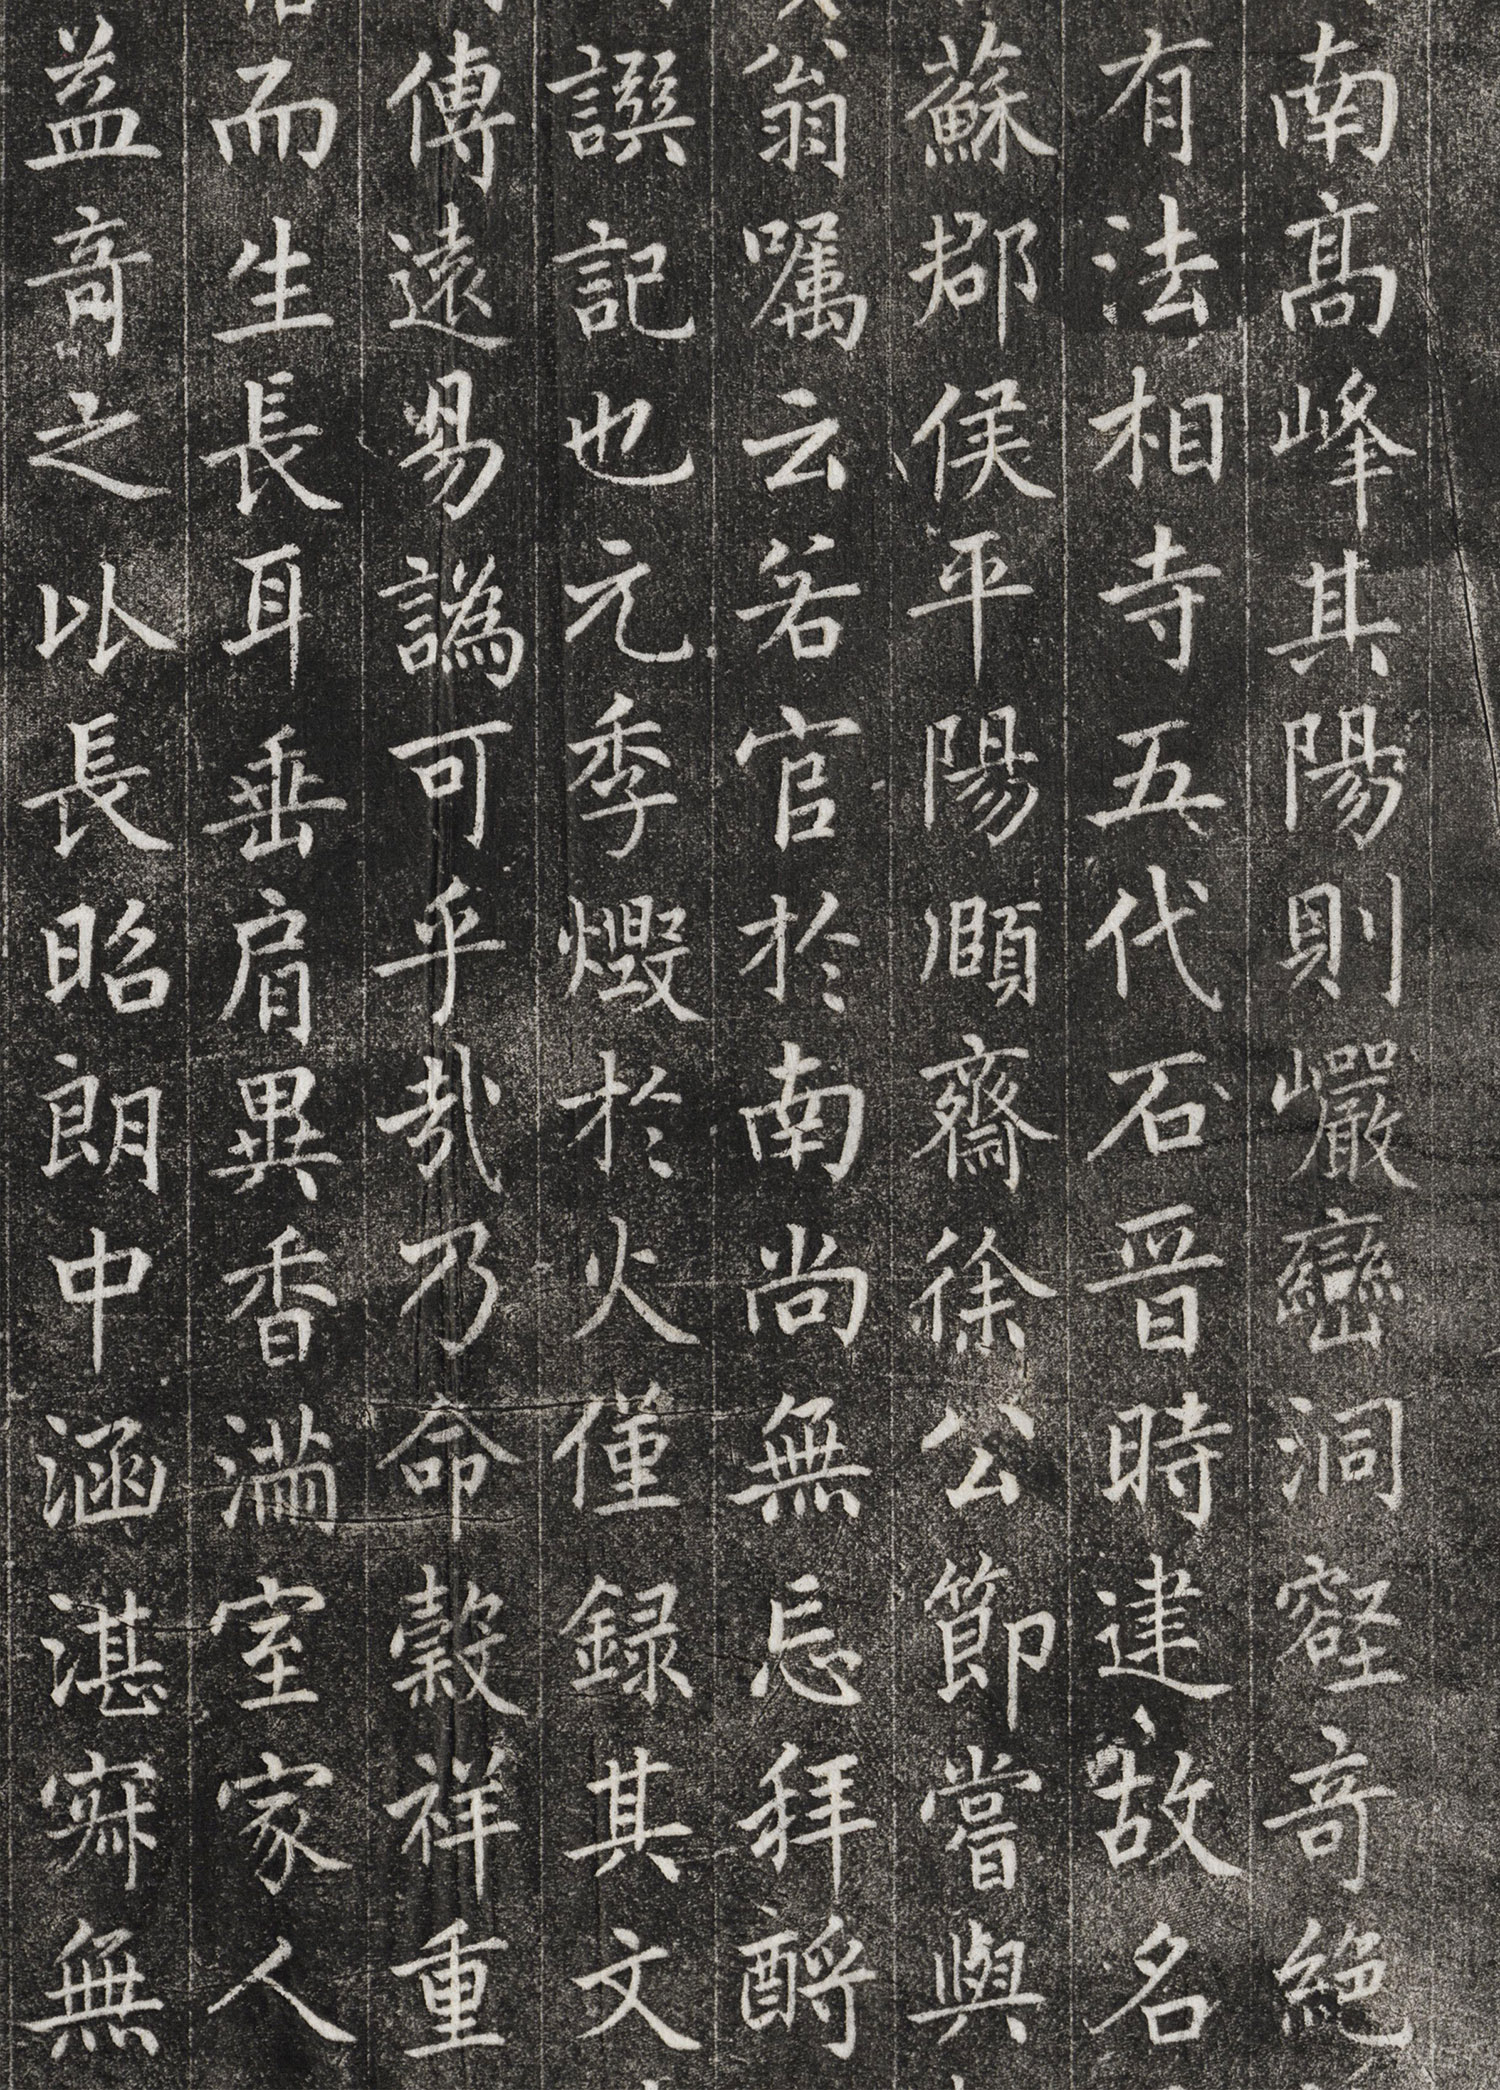 南高峰其陽則巖巒洞壑奇絕
有法相寺五代石晉時建故名
蘇郡侯平陽頤齋徐公節嘗與
翁囑云若官於南尚無忘拜酹
譔記也元季燬於火僅録其文
傳遠易譌可乎哉乃命縠祥重
而生長耳垂肩異香滿室家人
益奇之以長昭朗中涵湛寂無